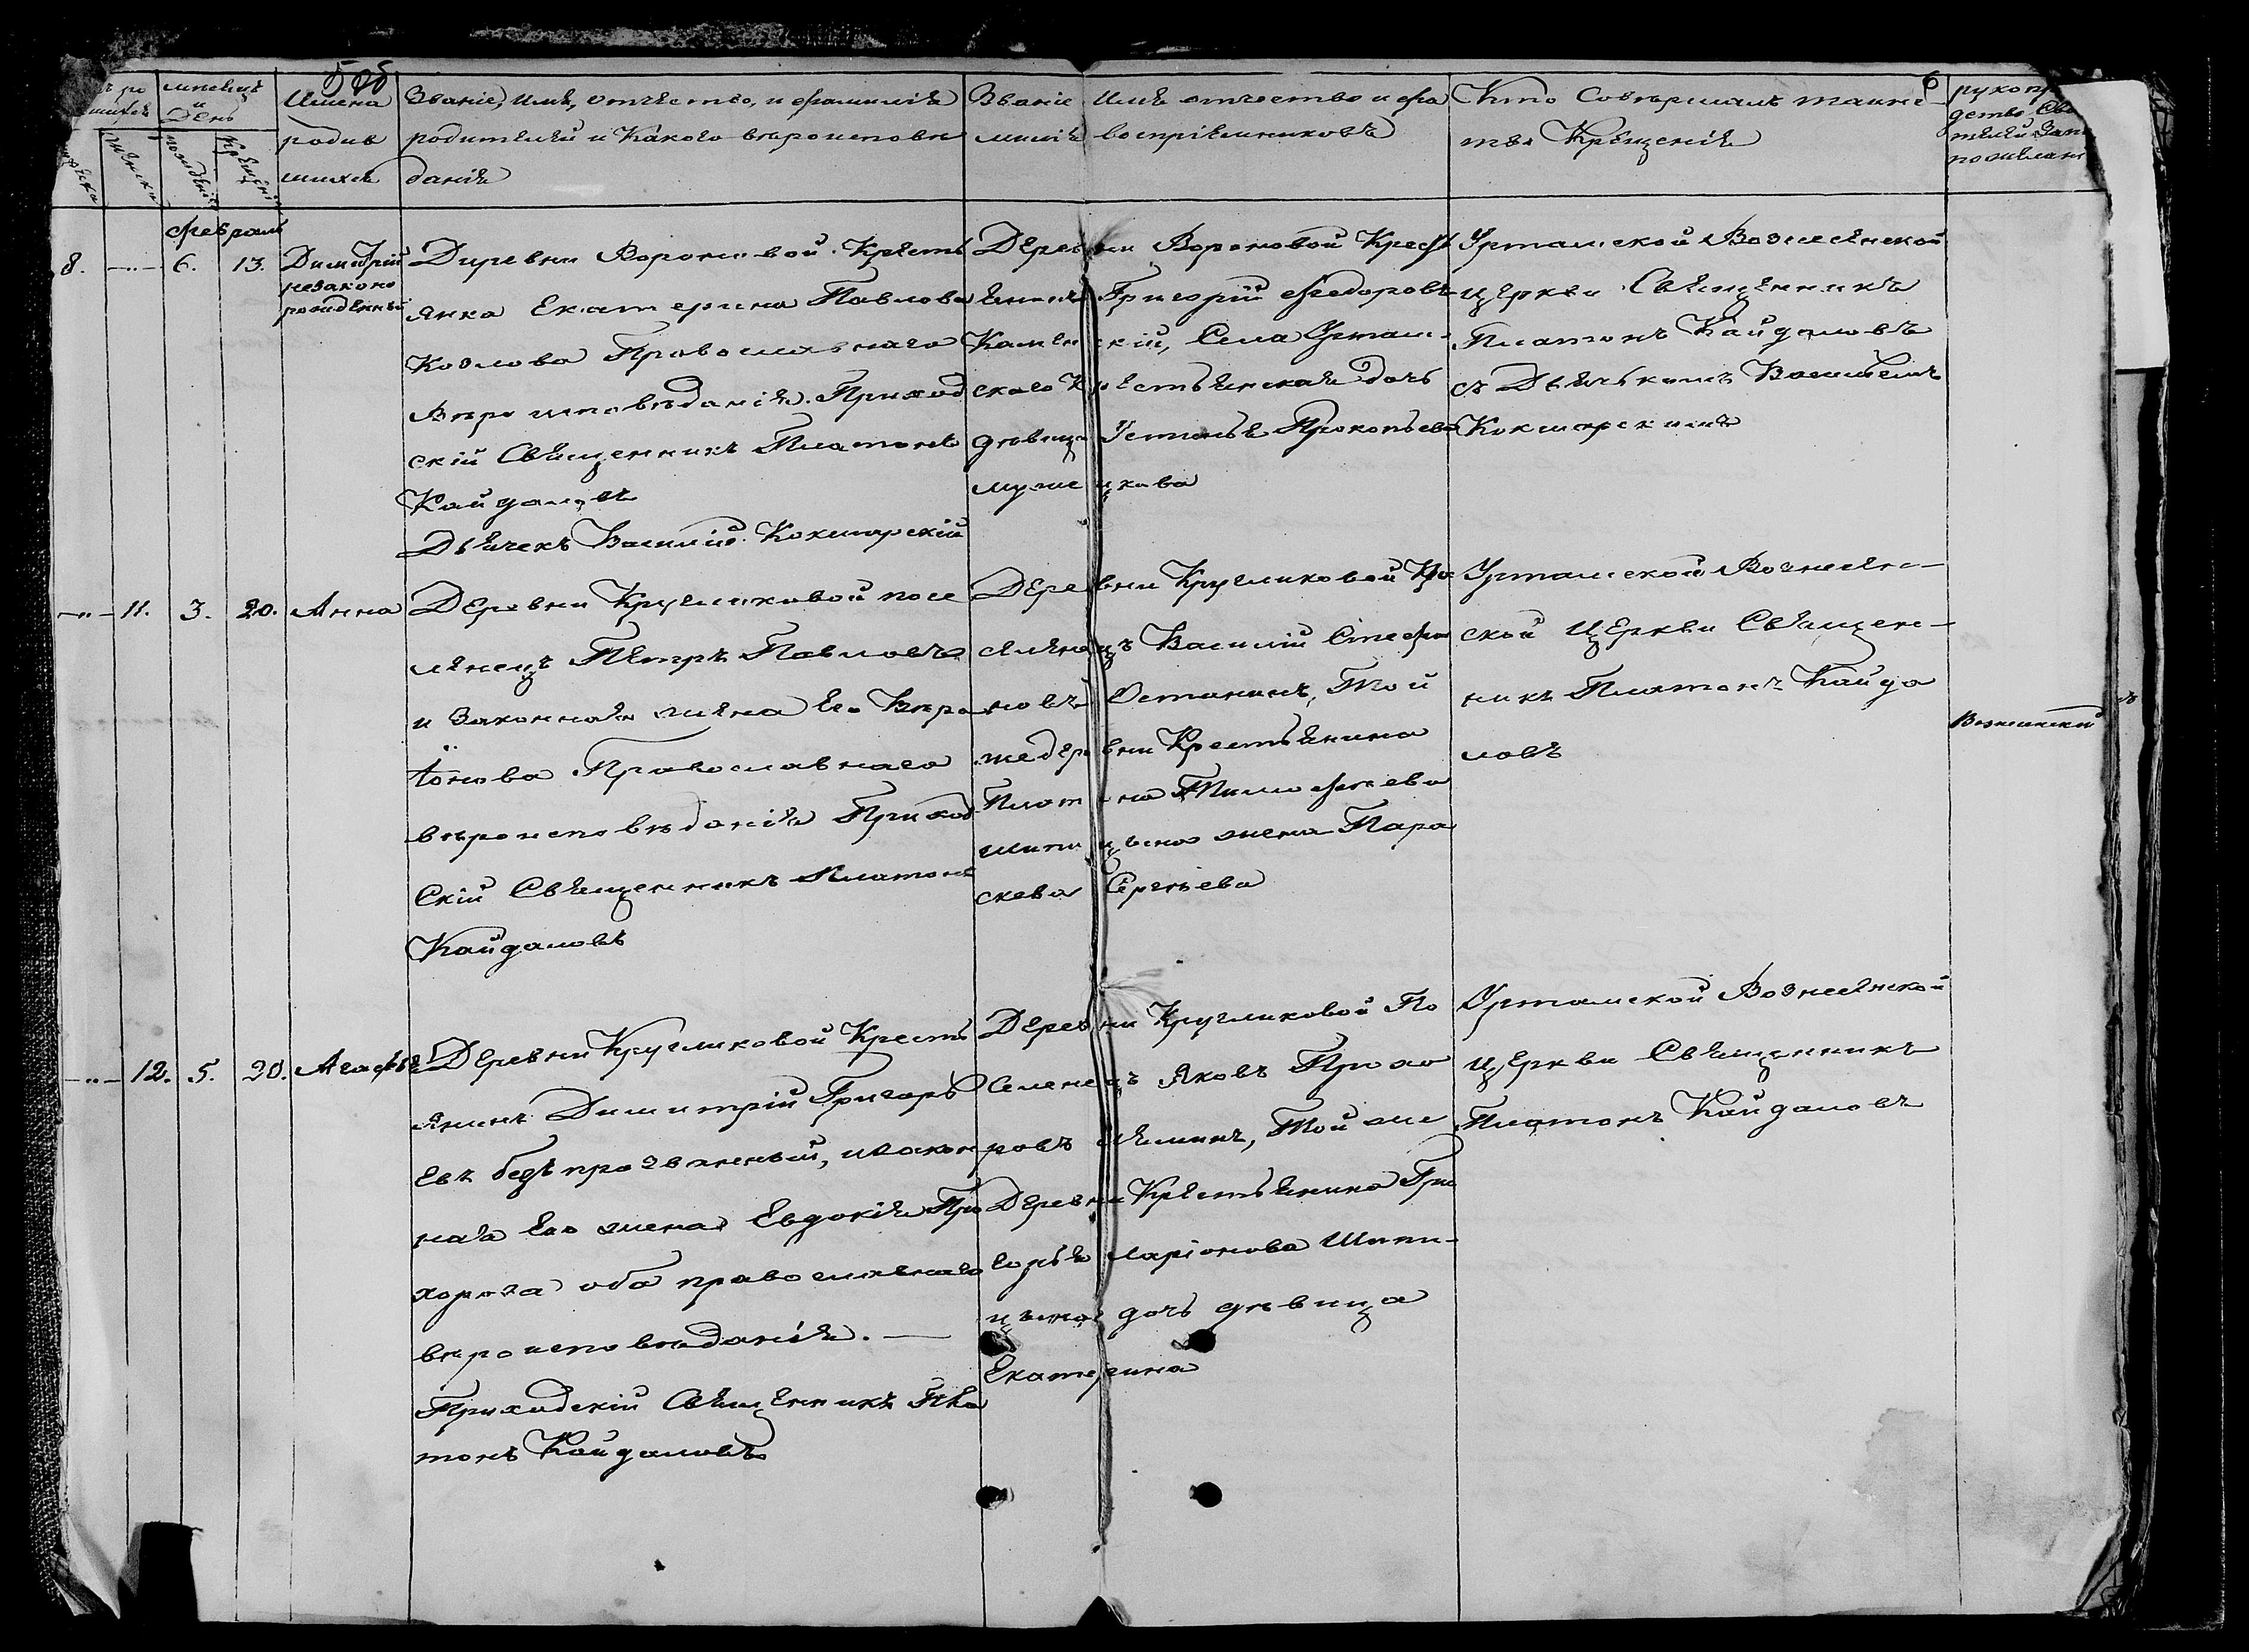 5 об
6
мѣсяцъ
и
День
Имена
родив
шихся
Званіе, Имя, отчество, и фамилія
родителей и Какого вѣроисповѣ
данія
Званіе Имя отчество и фа
милія воспріемниковъ
Кто Совершалъ таинс-
тво Крещенія
рукопр
детво
по желан
Рожденія
Крещенія
февраль
8.
6.
13.
Димитрій
незаконо
рожденный
Диревни Вороновой Кресть
янка Екатерина Павлова
Козлова Православнаго
Вѣро исповѣданія. Приход
скій Священникъ Платонъ
Кайдаловъ
Дьячекъ Василій Кокшарскій
Деревни Вороновой Крест
Григорій Федоровъ
Каменскій, Села Уртам-
скаго Крестьянская дочь
дѣвица Устинья Прокопьева
Уртамской Вознесенской
церкви Священникъ
Платонъ Кайдаловъ
съ Дьячькомъ Василіемъ
Кокшарскимъ
11.
3.
20.
Анна
Деревни Кругликовой посе
ленецъ Петръ Павловъ
и Законная жена Его Вѣра
Православнаго
вѣроисповѣданія Приход
Скій Священникъ Платонъ
Кайдаловъ
Деревни Кругликовой
Василій Стефа
новъ Останинъ, Той
же деревни Крестьянина
Платона Тимофеева
Шипицына жена Пара
скева Сергѣева
Уртамской Вознесен-
ской Церкви Священ-
никъ Платонъ Кайда
ловъ
Вознесенской
12.
5.
20.
Агафья
Деревни Кругликовой Кресть
янинъ Димитрій Григорь
евъ безъ прозванный, и закон
ная Его жена Евдокія Про
хорова оба православнаго
вѣроисповѣданія.
Приходскій Священникъ Пла
тонъ Кайдаловъ
Деревни Кругликовой По
Селенецъ Яковъ Прохо
ровъ Той же
Деревни Крестьянина Гри
горья Ларіонова Шипи-
цына дочь дѣвица
Екатерина
Уртамской Вознесенской
церкви Священникъ
Платонъ Кайдаловъ